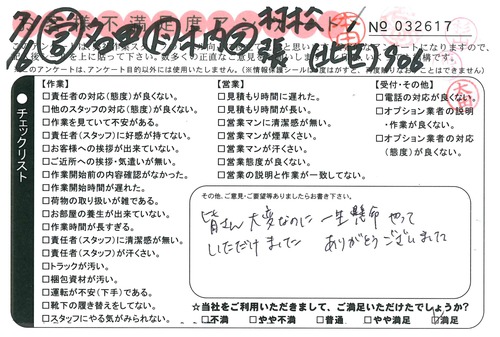 お客様不満足度アンケート
村松
№ 032617
906
このアンケートは、アンケート目的以外には使用いたしません。(※情報保護シールは一度はがすと、再度貼りなおすことはできません)
チェックリスト
【作業】
□責任者の対応(態度)が良くない。
□他のスタッフの対応(態度)が良くない。
□作業を見ていて不安がある。
□責任者(スタッフ)に好感が持てない。
□お客様への挨拶が出来ていない。
□ご近所への挨拶・気遣いが無い。
□作業開始前の内容確認がなかった。
□作業開始時間が遅れた。
□荷物の取り扱いが雑である。
□お部屋の養生が出来ていない。
□作業時間が長すぎる。
□責任者(スタッフ)に清潔感が無い。
□責任者(スタッフ)が汗くさい。
□トラックが汚い。
□梱包資材が汚い。
□運転が不安(下手)である。
□靴下の履き替えをしてない。
□スタッフにやる気がみられない。
【営業】
□見積もり時間に遅れた。
□見積もり時間が長い。
□営業マンに清潔感が無い。
□営業マンが煙草くさい。
□営業マンが汗くさい。
□営業態度が良くない。
□営業の説明と作業が一致してない。
【受付・その他】
□電話の対応が良くない。
□オプション業者の説明
・作業が良くない。
□オプション業者の対応
(態度)が良くない。
その他、ご意見・ご要望等ありましたらお書き下さい。
皆さん 大変なのに 一生懸命 やって
いただけました ありがとうございました
☆当社をご利用いただきまして、ご満足いただけたでしょうか?
□不満 □やや不満 □普通 □やや満足 □満足